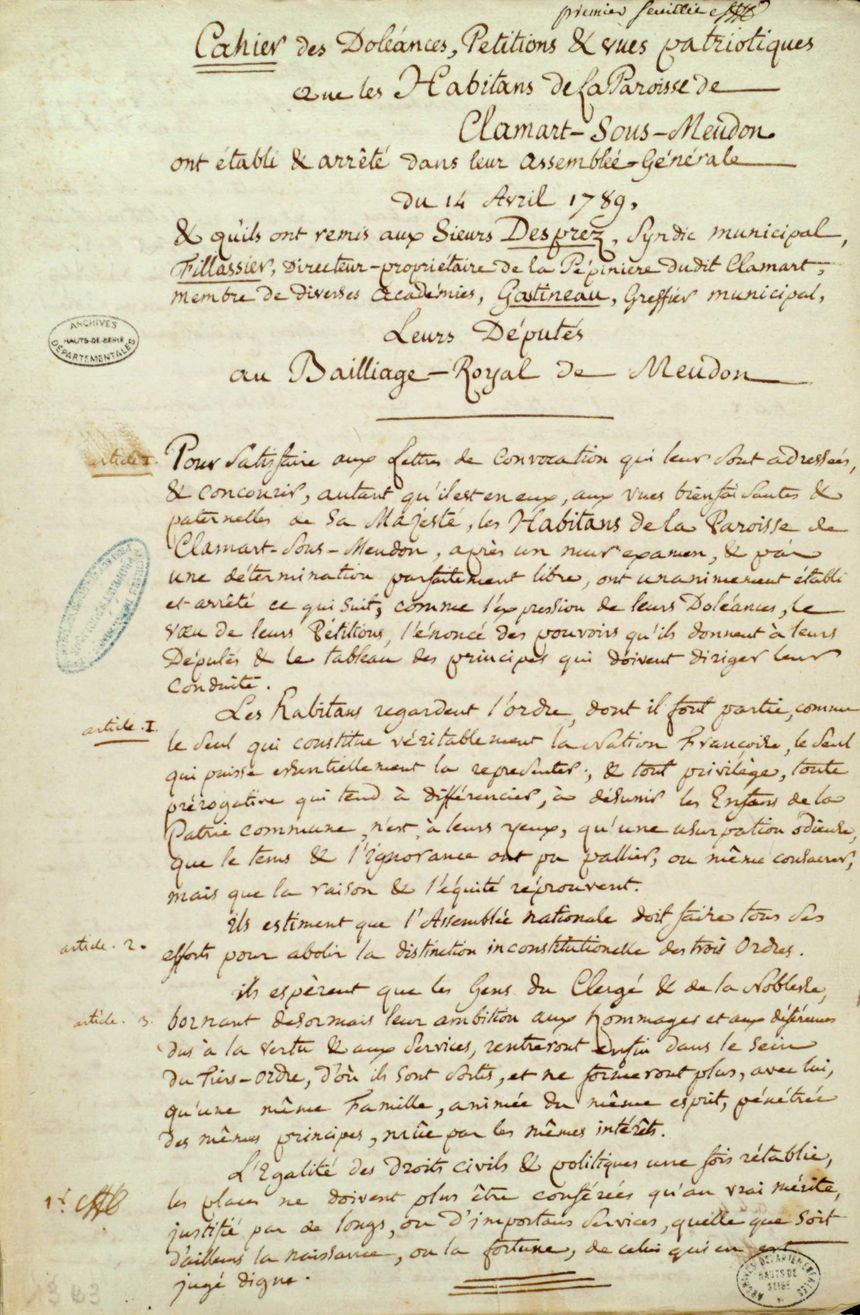 premier feuillet
Cahier des Doléances, Petitions & vues patriotiques
que les Habitans de la Paroisse de
Clamart-Sous-Meudon
ont établi & arrêté dans leur Assemblée-Générale
du 14 Avril 1789,
& qu'ils ont remis aux Sieurs Desprez, Syndic municipal,
Fillassier, Directeur-propriétaire de la Pépiniere dudit Clamart,
membre de diverses académies, Gatineau, Greffier municipal,
Leurs Députés
au Bailliage-Royal de Meudon
ARCHIVES
HAUTS-DE-SEINE
DÉPARTEMENTALES
article I.
Pour satisfaire aux Lettres de Convocation qui leur sont adressées,
& concourir, autant qu'il est en eux, aux vues bienfaisantes &
paternelles de Sa Majesté, les Habitans de la Paroisse de
Clamart-Sous-Meudon, après un mur examen, & par
une détermination parfaitement libre, ont unanimement établi
et arrêté ce qui suit, comme l'expression de leurs Doléances, le
vœu de leurs Pétitions, l'énoncé des pouvoirs qu'ils donnent à leurs
Députés & le tableau des principes qui doivent diriger leur
conduite.
article. I.
Les habitans regardent l'ordre, dont il font partie, comme
le seul qui constitue véritablement la Nation Françoise, le seul
qui puisse essentiellement la representer, & tout privilège, toute
prérogative qui tend à différencier, à désunir les Enfans de la
Patrie commune, n'est, à leurs yeux, qu'une usurpation odieuse,
que le tems & l'ignorance ont pu pallier, ou même consacrer,
mais que la raison & l'équité réprouvent.
article. 2.
ils estiment que l'Assemblée nationale doit faire tous ses
efforts pour abolir la distinction inconstitutionelle des trois Ordres.
article. 3.
ils espèrent que les Gens du Clergé & de la Noblesse,
bornant desormais leur ambition aux hommages et aux déférences
dus à la vertu & aux services, rentreront enfin dans le sein
du Tiers-Ordre, d'où ils sont sortis, et ne formeront plus, avec lui,
qu'une même Famille, animée du même esprit, pénétrée
des mêmes principes, mûe par les mêmes intérêts.
L'Egalité des droits civils & politiques une fois rétablie,
les places ne doivent plus être conférées qu'au vrai mérite,
justifié par de longs, ou d'importans services, quelle que soit
d'ailleurs la naissance, ou la fortune, de celui qui en est
jugé digne.
ARCHIVES DÉPARTEMENTALES
HAUTS DE
SEINE